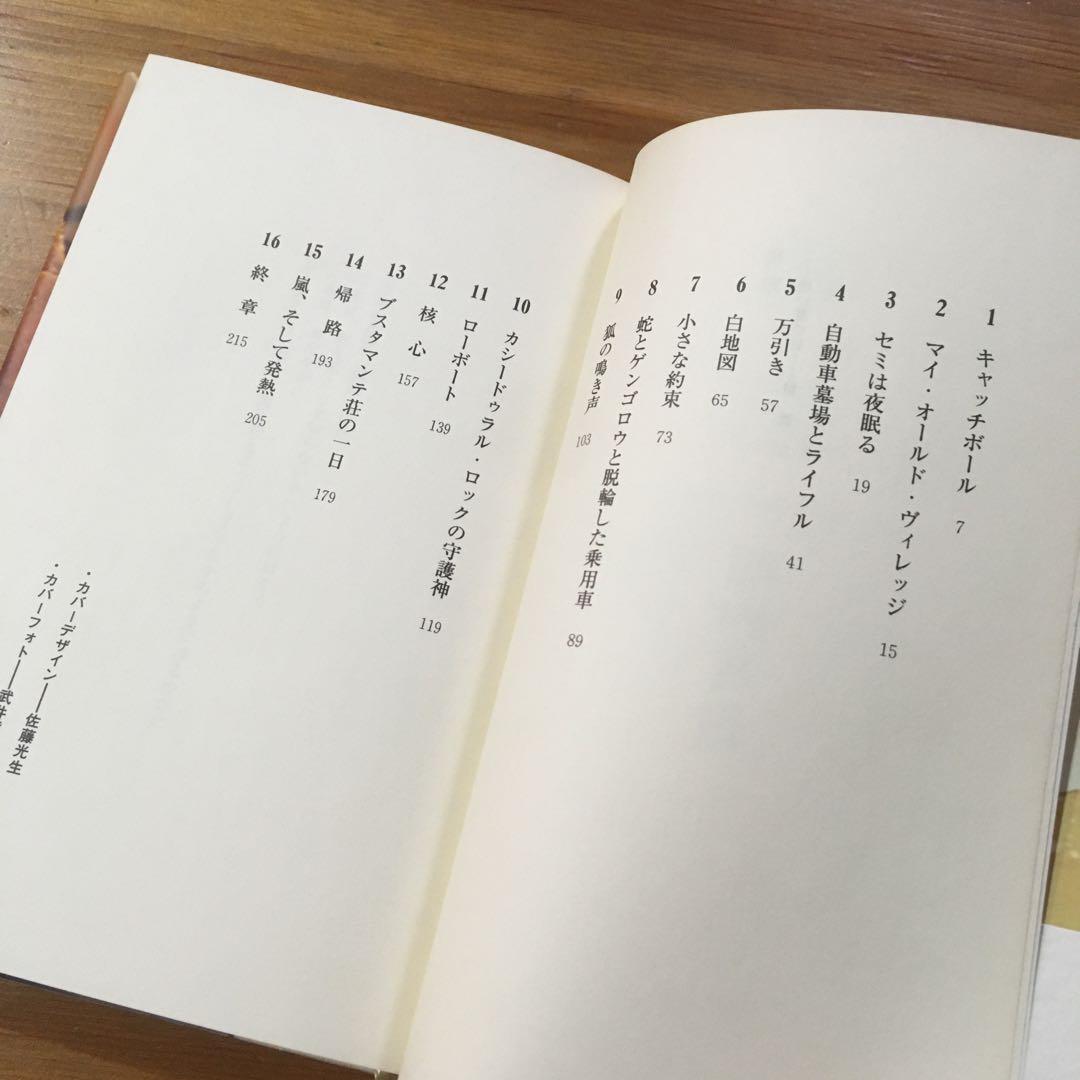 1 キャッチボール 7
2 マイ・オールド・ヴィレッジ 15
3 セミは夜眠る 19
4 自動車墓場とライフル 41
5 万引き 57
6 白地図 65
7 小さな約束 73
8 蛇とゲンゴロウと脱輪した乗用車 89
9 狐の鳴き声 103
10 カシードゥラル・ロックの守護神 119
11 ローボート 139
12 核心 157
13 ブスタマンテ荘の一日 179
14 帰路 193
15 嵐、そして発熱 205
16 終章 215
・カバーデザイン——佐藤光生
・カバーフォト——武井